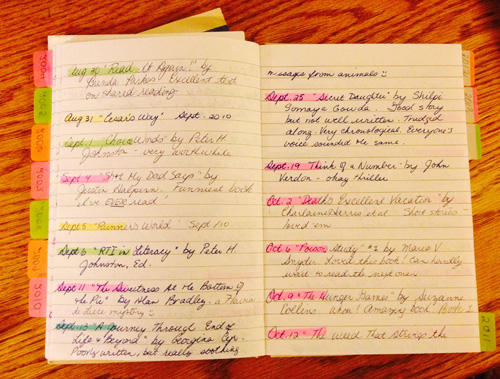 Aug 30 "Read It Again!" by
Brenda Parkes Excellent text
on shared reading
Aug 31 "Cesar's Way" Sept. 2010
Sept. 1 "Choice Words" by Peter H
Johnston - very worthwhile
Sept 4 "Sh*t My Dad Says" by
Justin Halpern. Funniest book
I've EVER read!
Sept 5 "Runner's World" Sept/10
Sept 6 "RTI in Literacy" by Peter H.
Johnston, Ed.
Sept 11 "The Sweetness At the Bottom of
the Pie" by Alan Bradley. a Flavia
de Luce mystery
Sept 13 "A Journey Through End of
Life & Beyond" by Georgina Cyr.
Poorly written, but really soothing
messages from animals
Sept. 25 "Secret Daughter" by Shilpi
Somaya Gowda. Good story
but not well written. Trudged
along. Very chronological. Everyone's
voice sounded the same.
Sept. 19 "Think of a Number" by John
Verdon - okay thriller
Oct. 2 "Death's Excellent Vacation" by
Charlaine Harris et al. Short stories
Oct 6 "Poison Study" #1 by Maria V
Snyder. Loved this book! Can hardly
wait to read the next one.
Oct. 9 "The Hunger Games" by Suzanne
Collins. Wow! Amazing book. Book 1
Oct. 12 "The Weed that Strings the
2010
2011